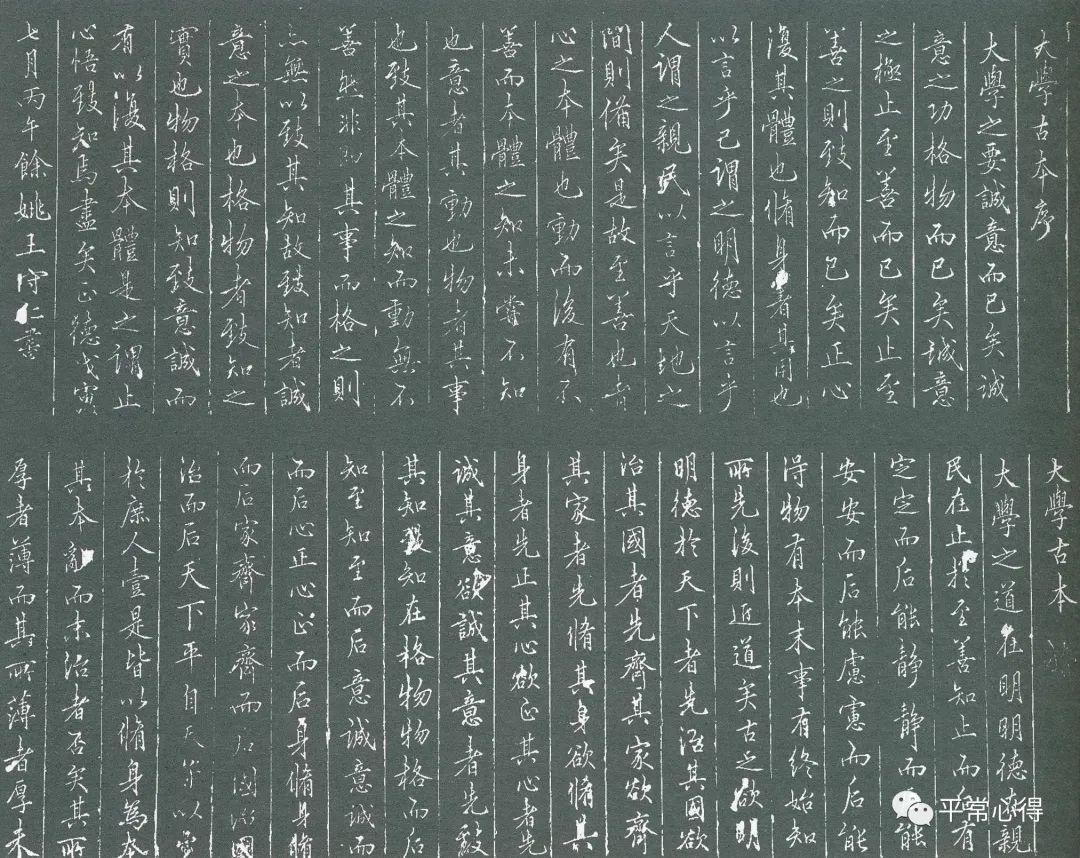 大學古本序
大學之要誠意而已矣誠
意之功格物而已矣誠意
之極止至善而已矣止至
善之則致知而已矣正心
復其體也脩身者其用也
以言乎己謂之明德以言乎
人謂之親民以言乎天地之
間則備矣是故至善也者
心之本體也動而後有不
善而本體之知未嘗不知
也意者其動也物者其事
也致其本體之知而動無不
善然非即其事而格之則
亦無以致其知故致知者誠
意之本也格物者致知之
實也物格則知致意誠而
有以復其本體是之謂止
心悟致知焉盡矣正德戊寅
七月丙午餘姚王守仁書
大學古本
大學之道在明明德在親
民在止於至善知止而后有
定定而后能靜靜而后能
安安而后能慮慮而后能
得物有本末事有終始知
所先後則近道矣古之欲明
明德於天下者先治其國欲
治其國者先齊其家欲齊
其家者先脩其身欲脩其
身者先正其心欲正其心者先
誠其意欲誠其意者先致
其知致知在格物物格而后
知至知至而后意誠意誠而
而后心正心正而后身脩身脩
而后家齊家齊而后國治國
治而后天下平自天子以至
於庶人壹是皆以脩身為本
其本亂而末治者否矣其所
厚者薄而其所薄者厚未
平常心得